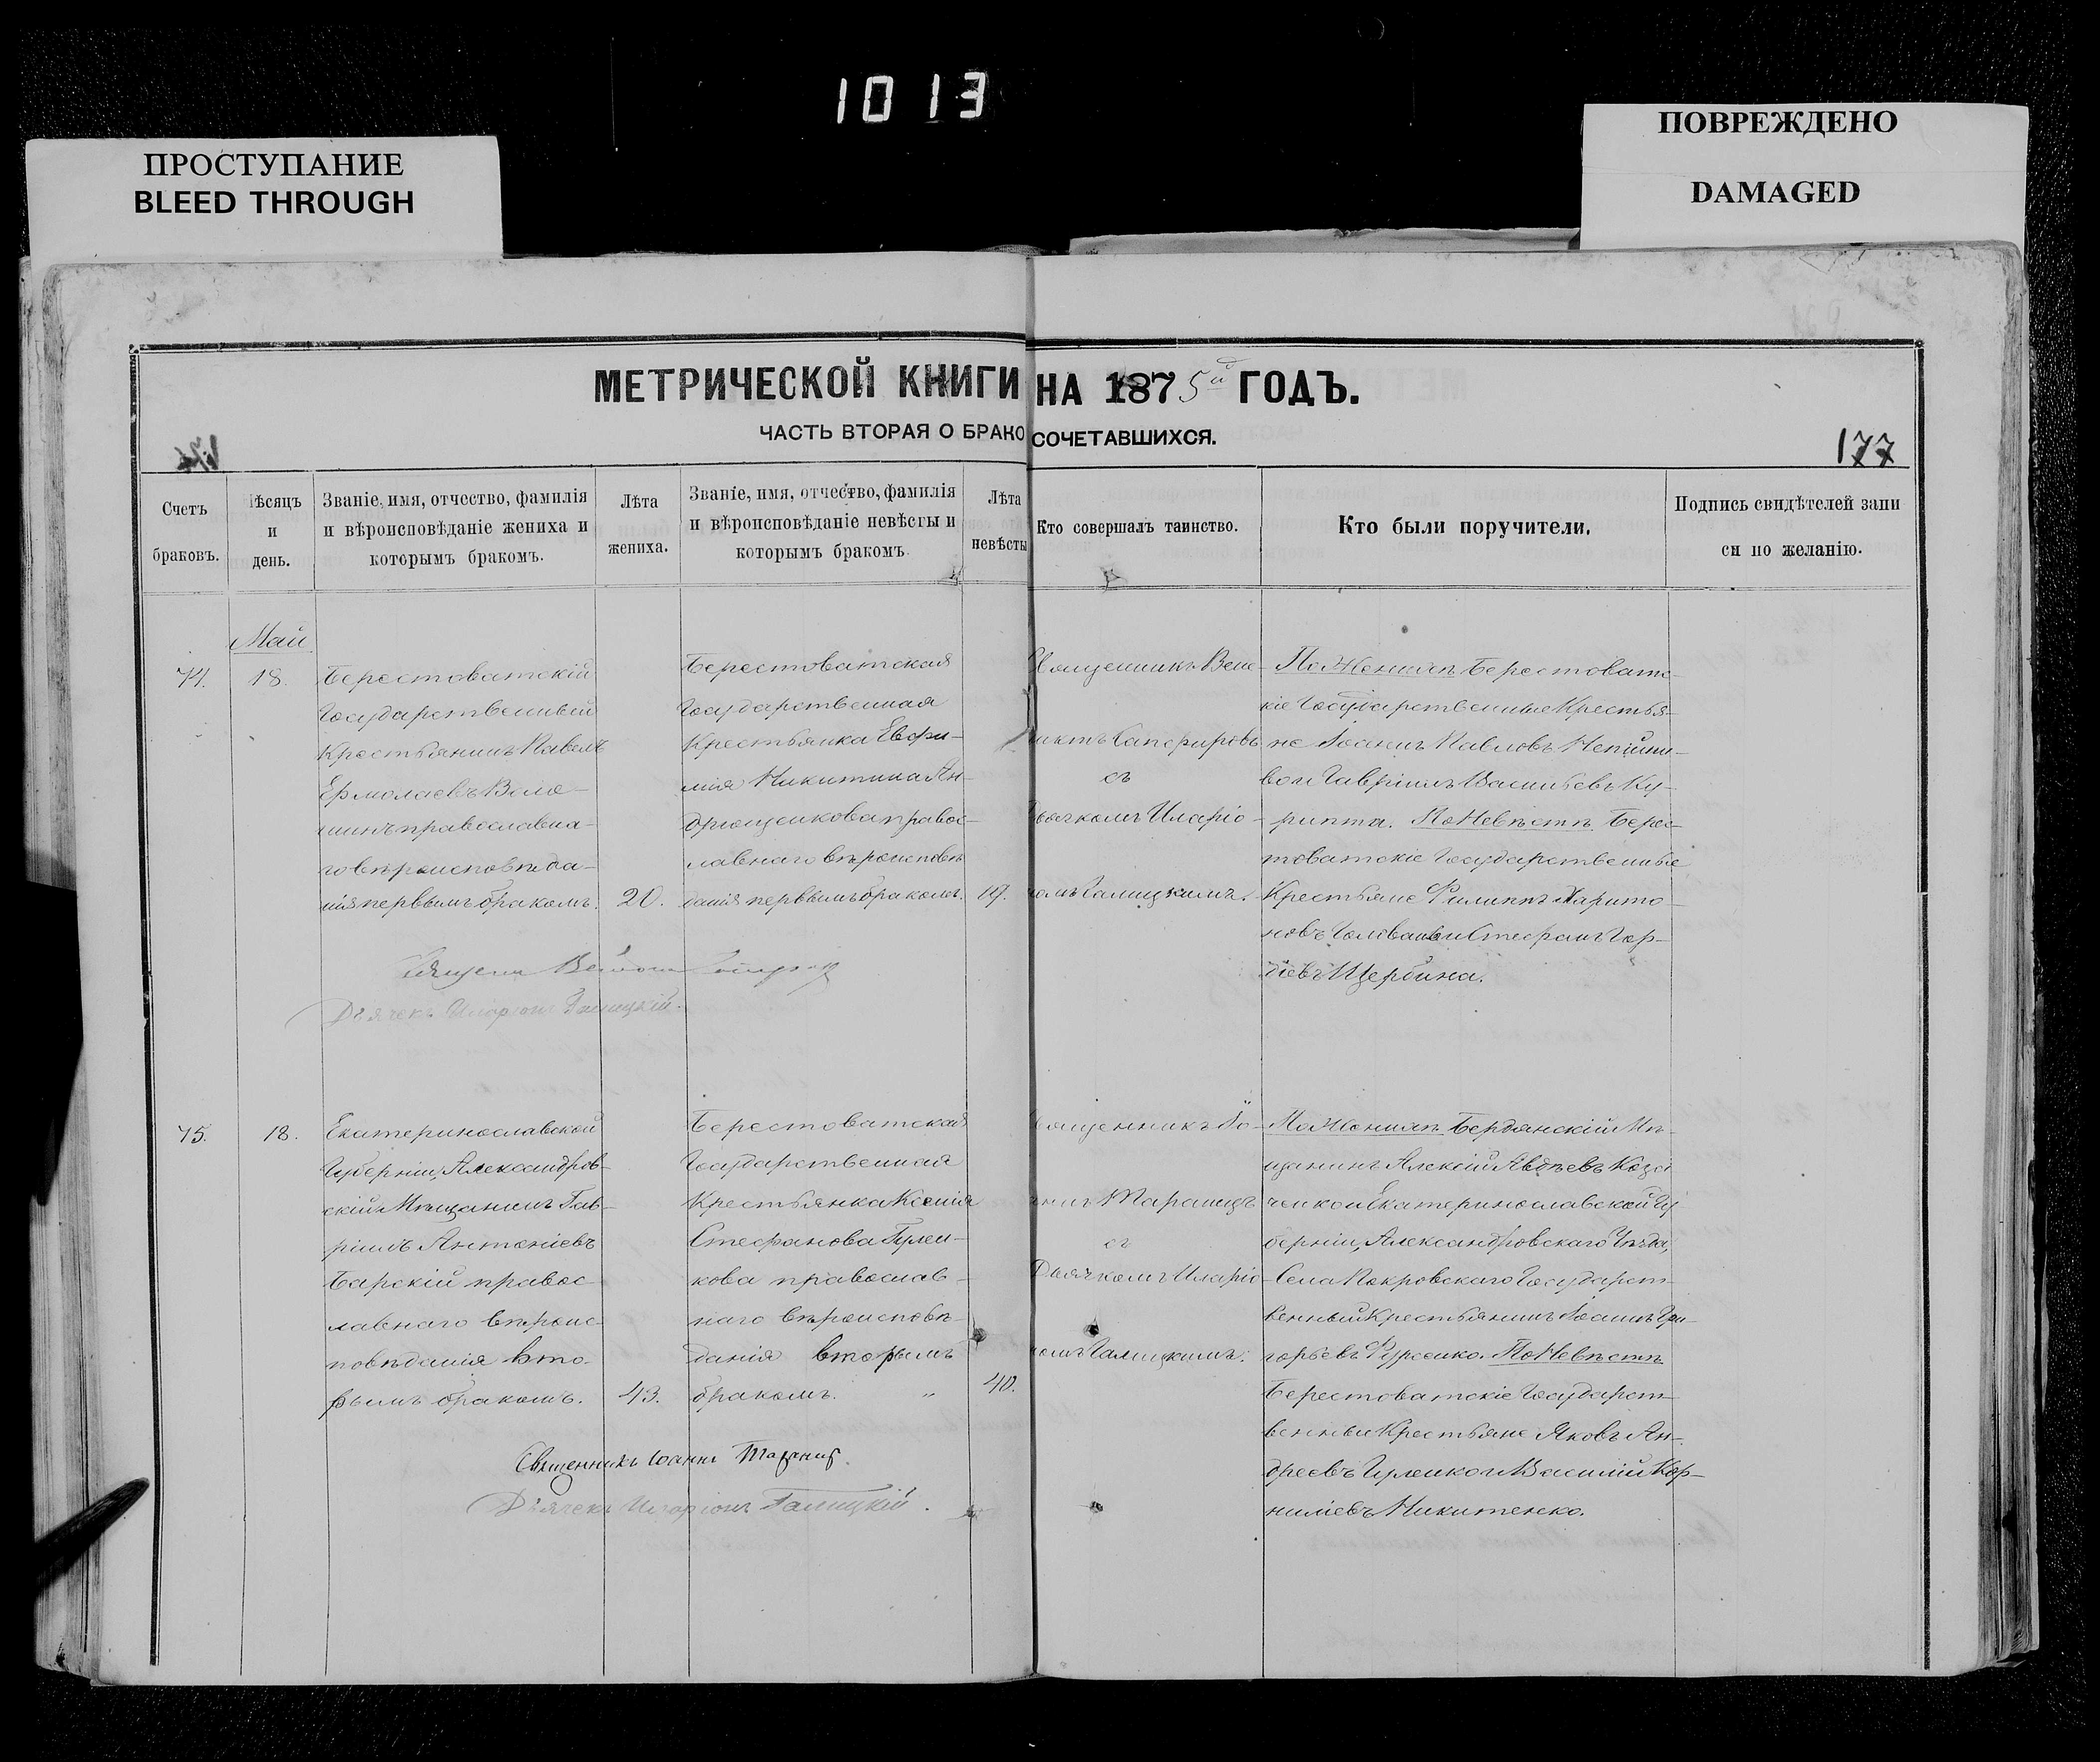 1013
ПРОСТУПАНИЕ
BLEED THROUGH
ПОВРЕЖДЕНО
DAMAGED
МЕТРИЧЕСКОЙ КНИГИ НА 1875й ГОДЪ.
ЧАСТЬ ВТОРАЯ О БРАКОСОЧЕТАВШИХСЯ.
177
Счетъ
браковъ.
Мѣсяцъ
и
день.
Званіе, имя, отчество, фамилія
и вѣроисповѣданіе жениха и
которымъ бракомъ.
Лѣта
жениха.
Званіе, имя, отчество, фамилія
и вѣроисповѣданіе невѣсты и
которымъ бракомъ.
Лѣта
невѣсты
Кто совершалъ таинство.
Кто были поручители.
Подпись свидѣтелей запи
си по желанію.
Май
74.
18.
Берестоватскій
Государственный
Крестьянинъ Павелъ
Ермолаевъ Воло-
шинъ православна-
го вѣроисповѣда-
нія первымъ бракомъ.
20.
Берестоватская
Государственная
Крестьянка Евфи-
мія Никитина Ан-
дрющенкова правос-
лавнаго вѣроисповѣ
данія первымъ бракомъ.
19.
Священникъ Вене-
диктъ Сапфировъ
съ
Дьячкомъ Иларіо-
номъ Галицкимъ.
По Женихѣ Берестоватс-
кіе Государственные Крестья-
не Іоаннъ Павловъ
вои Гавріилъ Васильевъ Ку-
рипта. По Невѣстѣ Берес-
товатскіе Государственные
Крестьяне Филиппъ Харито-
новъ Стефанъ Гор-
діевъ Щербина.
Дьячекъ Иларіонъ Галицкій.
75.
18.
Екатеринославской
Губерніи, Александров-
скій Мѣщанинъ Гав-
ріилъ Антоніевъ
Барскій правос-
лавнаго вѣроис-
повѣданія вто-
рымъ бракомъ.
43.
Берестоватская
Государственная
Крестьянка Ксенія
Стефанова Гулен-
кова православ-
наго вѣроисповѣ-
данія вторымъ
бракомъ. "
40.
Священникъ Іо-
аннъ Тараницъ
съ
Дьячкомъ Иларіо-
номъ Галицкимъ.
По Женихѣ Бердянскій Мѣ-
щанинъ Алексій Авдѣевъ Коза
ченко и Екатеринославской Гу-
берніи, Александровскаго Уѣзда,
Села Покровскаго Государст-
венный Крестьянинъ Іоаннъ Гри-
горьевъ Фурсенко. По Невѣстѣ
Берестоватскіе Государст-
венные Крестьяне Яковъ Ан-
дреевъ Гуленко и Василій Кор-
ниліевъ Никитенко.
Священникъ Іоаннъ Тараницъ.
Дьячекъ Иларіонъ Галицкій.